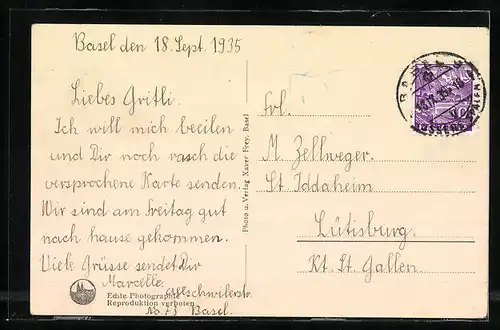 Basel den 18. Sept. 1935
Liebes Gritli.
Ich will mich beeilen
und Dir noch rasch die
versprochene Karte senden.
Wir sind am Freitag gut
nach hause gekommen.
Viele Grüsse sendet Dir
Marcelle.
Allschwilerstr.
No. 73 Basel.
Echte Photographie
Reproduktion verboten
Photo u. Verlag Xaver Frey, Basel
Frl.
M. Zellweger.
St. Iddaheim
Lütisburg.
Kt. St. Gallen.
BASEL
10